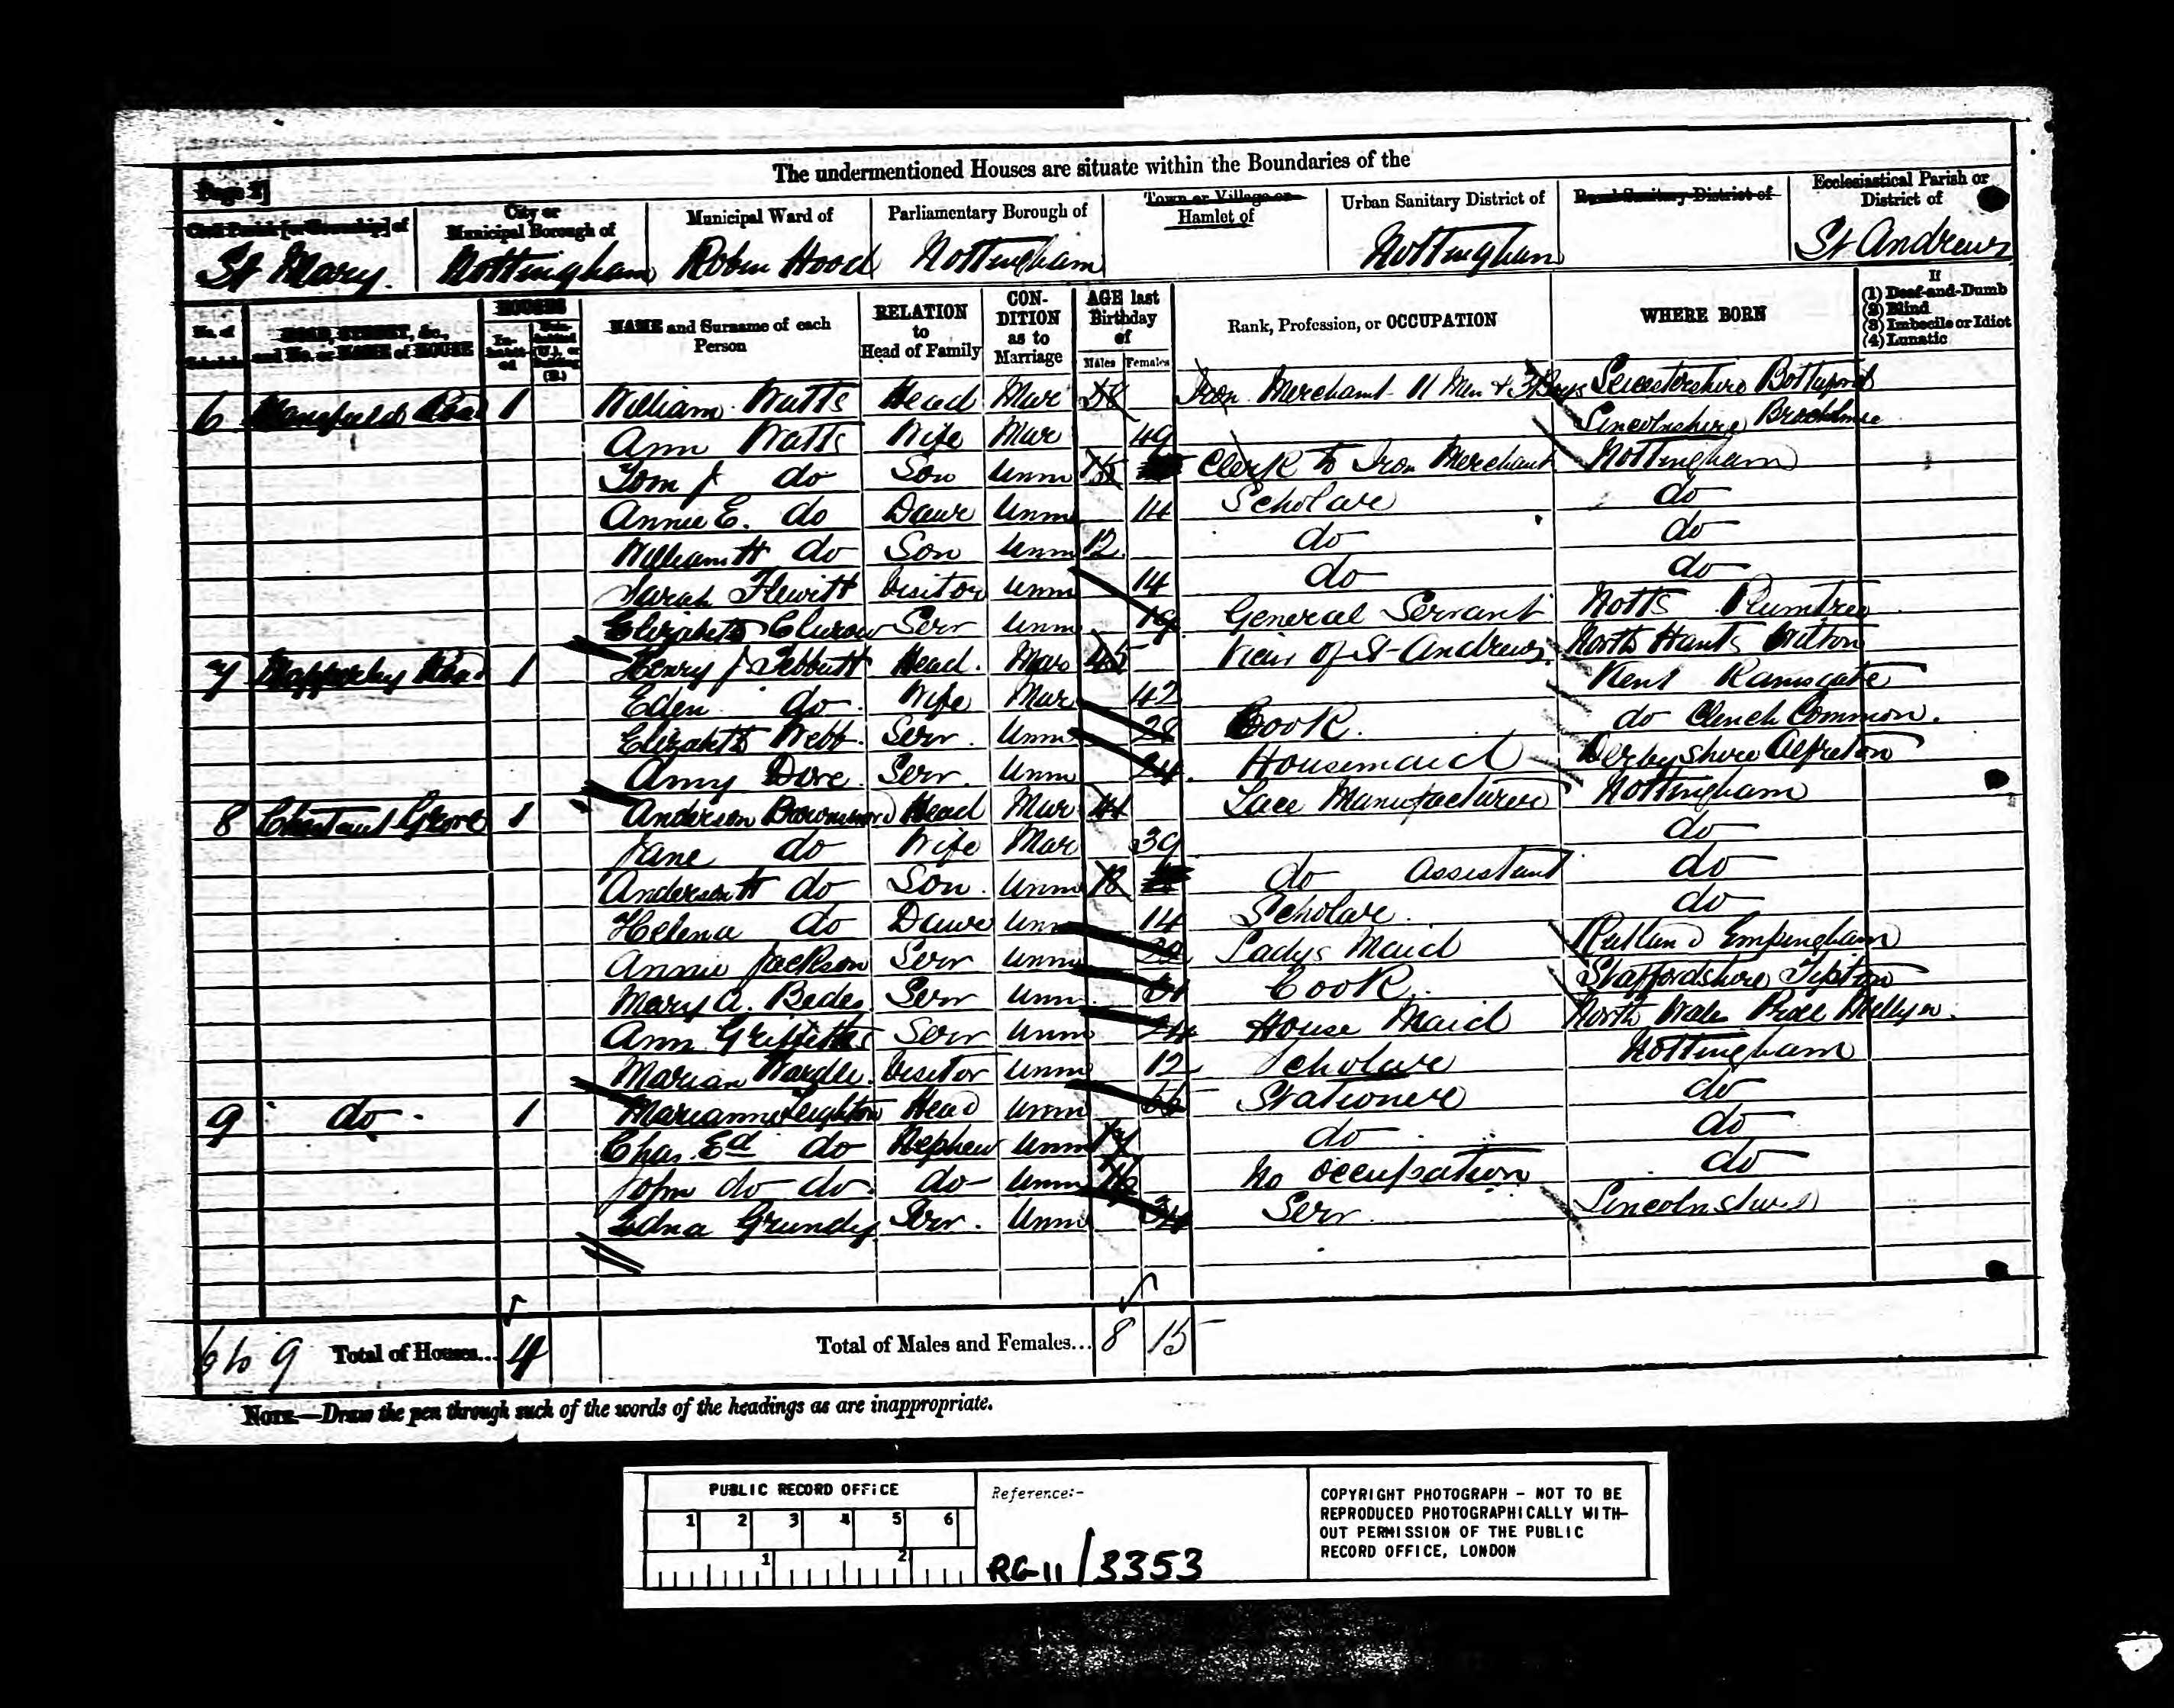 The undermentioned Houses are situate within the Boundaries of the
Page 2]
Civil Parish [or Township] of
City or Municipal Borough of
Municipal Ward of
Parliamentary Borough of
Town or Village or Hamlet of
Urban Sanitary District of
Rural Sanitary District of
Ecclesiastical Parish or District of
St Mary. Nottingham Robin Hood Nottingham Nottingham St Andrews
No. of Schedule
ROAD, STREET, &c., and No. or NAME of HOUSE
HOUSES
In-habit-ed
Unin-habited (U.), or Building (B.)
NAME and Surname of each Person
RELATION to Head of Family
CON-DITION as to Marriage
AGE last Birthday of
Males Females
Rank, Profession, or OCCUPATION
WHERE BORN
If
(1) Deaf-and-Dumb
(2) Blind
(3) Imbecile or Idiot
(4) Lunatic
6 Mansfield Road 1 William Watts Head Mar 58 Iron Merchant 11 Men & 3 Boys Leicestershire Bottesford
Ann Watts Wife Mar 49 Lincolnshire
Tom J do Son Unm Clerk to Iron Merchant Nottingham
Annie E. do Daur Unm 14 Scholar do
William H do Son Unm 12 do do
Sarah Flewitt Visitor Unm 14 do do
Elizabeth Serr Unm 19 General Servant Notts Plumtree
7 Mapperley Road 1 Henry J Tebbutt Head. Mar 45 Vicar of St Andrews North Hants
Eden do Wife Mar 42 Kent Ramsgate
Elizabeth Webb. Serr. Unm 28 Cook. do Common.
Amy Dore. Serr. Unm 24 Housemaid Derbyshire Alfreton
8 Chestnut Grove 1 Anderson Brownsword Head Mar 44 Lace Manufacturer Nottingham
Jane do Wife Mar 39 do
Anderson H do Son. Unm 18 do Assistant do
Helena do Daur Unm 14 Scholar. do
Annie Jackson Serr Unm Ladys Maid Rutland Empingham
Mary A. Serr Unm Cook. Staffordshire Tipton
Ann Griffiths Serr Unm 24 House Maid North Wales
Marian Wardle. Visitor Unm 12 Scholar Nottingham
9 do 1 Marianne Leighton Head Unm 66 Stationer do
Chas. Ed do Nephew Unm do do
John do do. do Unm 16 No occupation do
Edna Grundy Serr. Unm 34 Serr. Lincolnshire
6 to 9 Total of Houses... 4 Total of Males and Females... 8 15
NOTE.—Draw the pen through such of the words of the headings as are inappropriate.
PUBLIC RECORD OFFICE
1 2 3 4 5 6
1 2
Reference:-
RG 11/3353
COPYRIGHT PHOTOGRAPH - NOT TO BE
REPRODUCED PHOTOGRAPHICALLY WITH-
OUT PERMISSION OF THE PUBLIC
RECORD OFFICE, LONDON